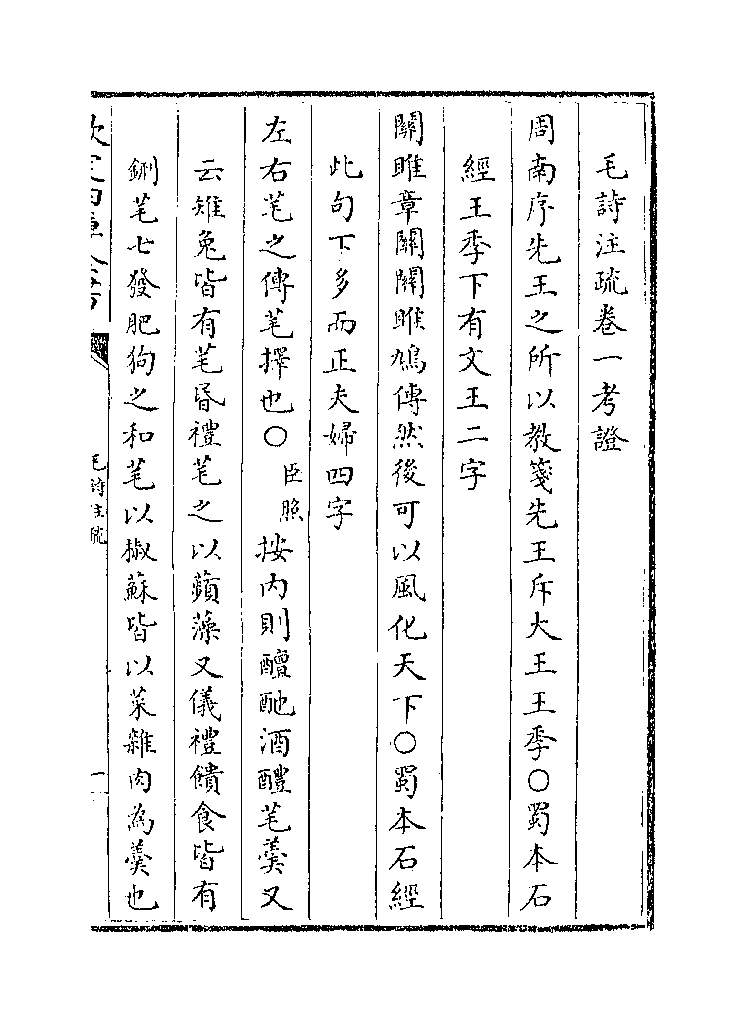 毛詩注疏卷一考證
周南序先王之所以教箋先王斥大王王季○蜀本石
經王季下有文王二字
關雎章關關雎鳩傳然後可以風化天下○蜀本石經
此句下多而正夫婦四字
左右芼之傳芼擇也○臣照按內則饘酏酒醴芼羮又
云雉兔皆有芼昏禮芼之以蘋藻又儀禮饋食皆有
鉶芼七發肥狗之和芼以椒蘇皆以菜雜肉為羮也
毛詩注疏
一